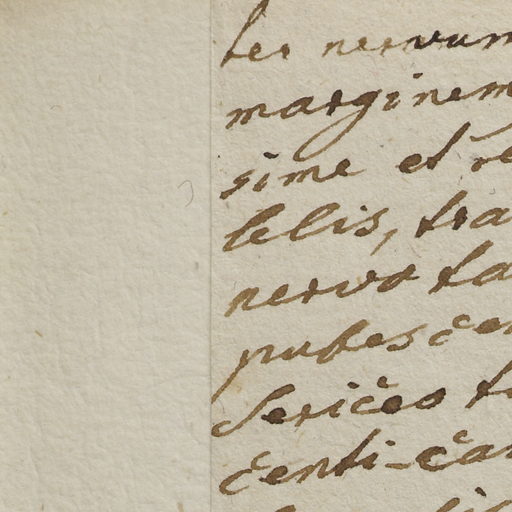 ter nervum
marginem
sime et re
lelis, tra
nervo ta
pubescen
Sericeo t
centi-ca